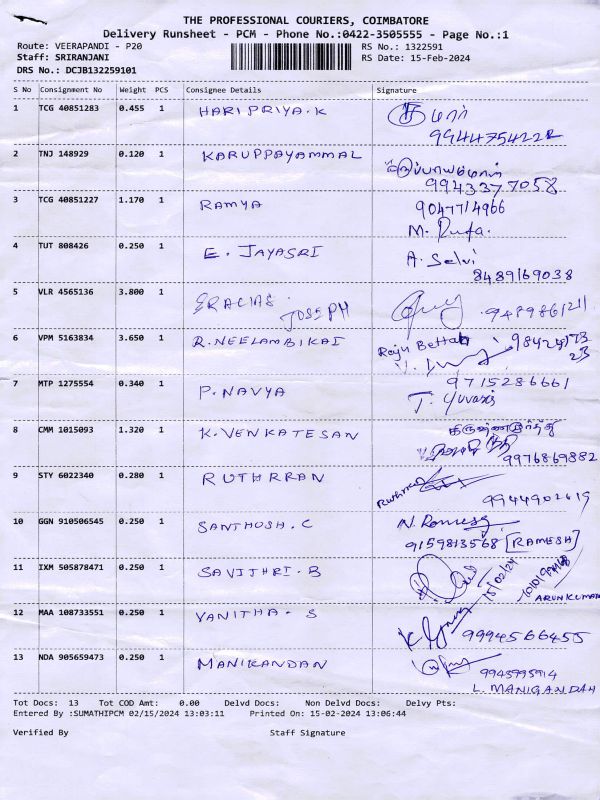 THE PROFESSIONAL COURIERS, COIMBATORE
Delivery Runsheet - PCM - Phone No.:0422-3505555 - Page No.:1
Route: VEERAPANDI - P20 RS No.: 1322591
Staff: SRIRANJANI RS Date: 15-Feb-2024
DRS No.: DCJB132259101
S No Consignment No Weight PCS Consignee Details Signature
1 TCG 40851283 0.455 1 HARIPRIYA.K
2 TNJ 148929 0.120 1 KARUPPAYAMMAL
9943377058
3 TCG 40851227 1.170 1 RAMYA 9047714966
4 TUT 808426 0.250 1 E. JAYASRI A. Selvi
8489169038
5 VLR 4565136 3.800 1 GRACIAS JOSEPH
6 VPM 5163834 3.650 1 R.NEELAMBIKAI Raju Bettah
7 MTP 1275554 0.340 1 P.NAVYA 9715286661
8 CMM 1015093 1.320 1 K.VENKATESAN
9976869882
9 STY 6022340 0.280 1 RUTHRRAN
9944902619
10 GGN 910506545 0.250 1 SANTHOSH.C
9159813568 [RAMESH]
11 IXM 505878471 0.250 1 SAVITHRI.B 15/02/24
ARUNKUMAR
12 MAA 108733551 0.250 1 VANITHA.S 9994566455
13 NDA 905659473 0.250 1 MANIKANDAN
L. MANIGANDAN
Tot Docs: 13 Tot COD Amt: 0.00 Delvd Docs: Non Delvd Docs: Delvy Pts:
Entered By :SUMATHIPCM 02/15/2024 13:03:11 Printed On: 15-02-2024 13:06:44
Verified By Staff Signature